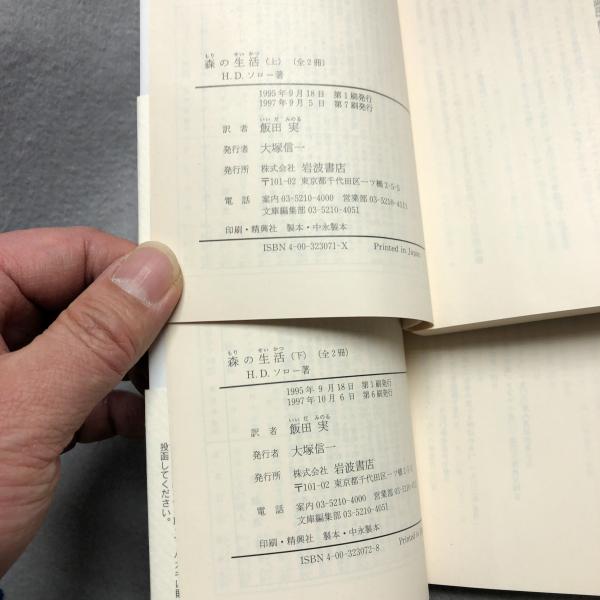 もり せいかつ
森の生活（上）（全2冊）
H.D.ソロー著
1995年9月18日 第1刷発行
1997年9月5日 第7刷発行
いいだ みのる
訳者 飯田 実
発行者 大塚信一
発行所 株式会社 岩波書店
〒101-02 東京都千代田区一ツ橋2-5-5
電話 案内03-5210-4000 営業部03-5210-4111
文庫編集部03-5210-4051
印刷・精興社 製本・中永製本
ISBN4-00-323071-X Printed in Japan
もり せいかつ
森の生活（下）（全2冊）
H.D.ソロー著
1995年9月18日 第1刷発行
1997年10月6日 第6刷発行
いいだ みのる
訳者 飯田 実
発行者 大塚信一
発行所 株式会社 岩波書店
〒101-02 東京都千代田区一ツ橋2-5-5
電話 案内03-5210-4000 営業部03-5210-4111
文庫編集部03-5210-4051
印刷・精興社 製本・中永製本
ISBN4-00-323072-8 Printed in
投函してください。